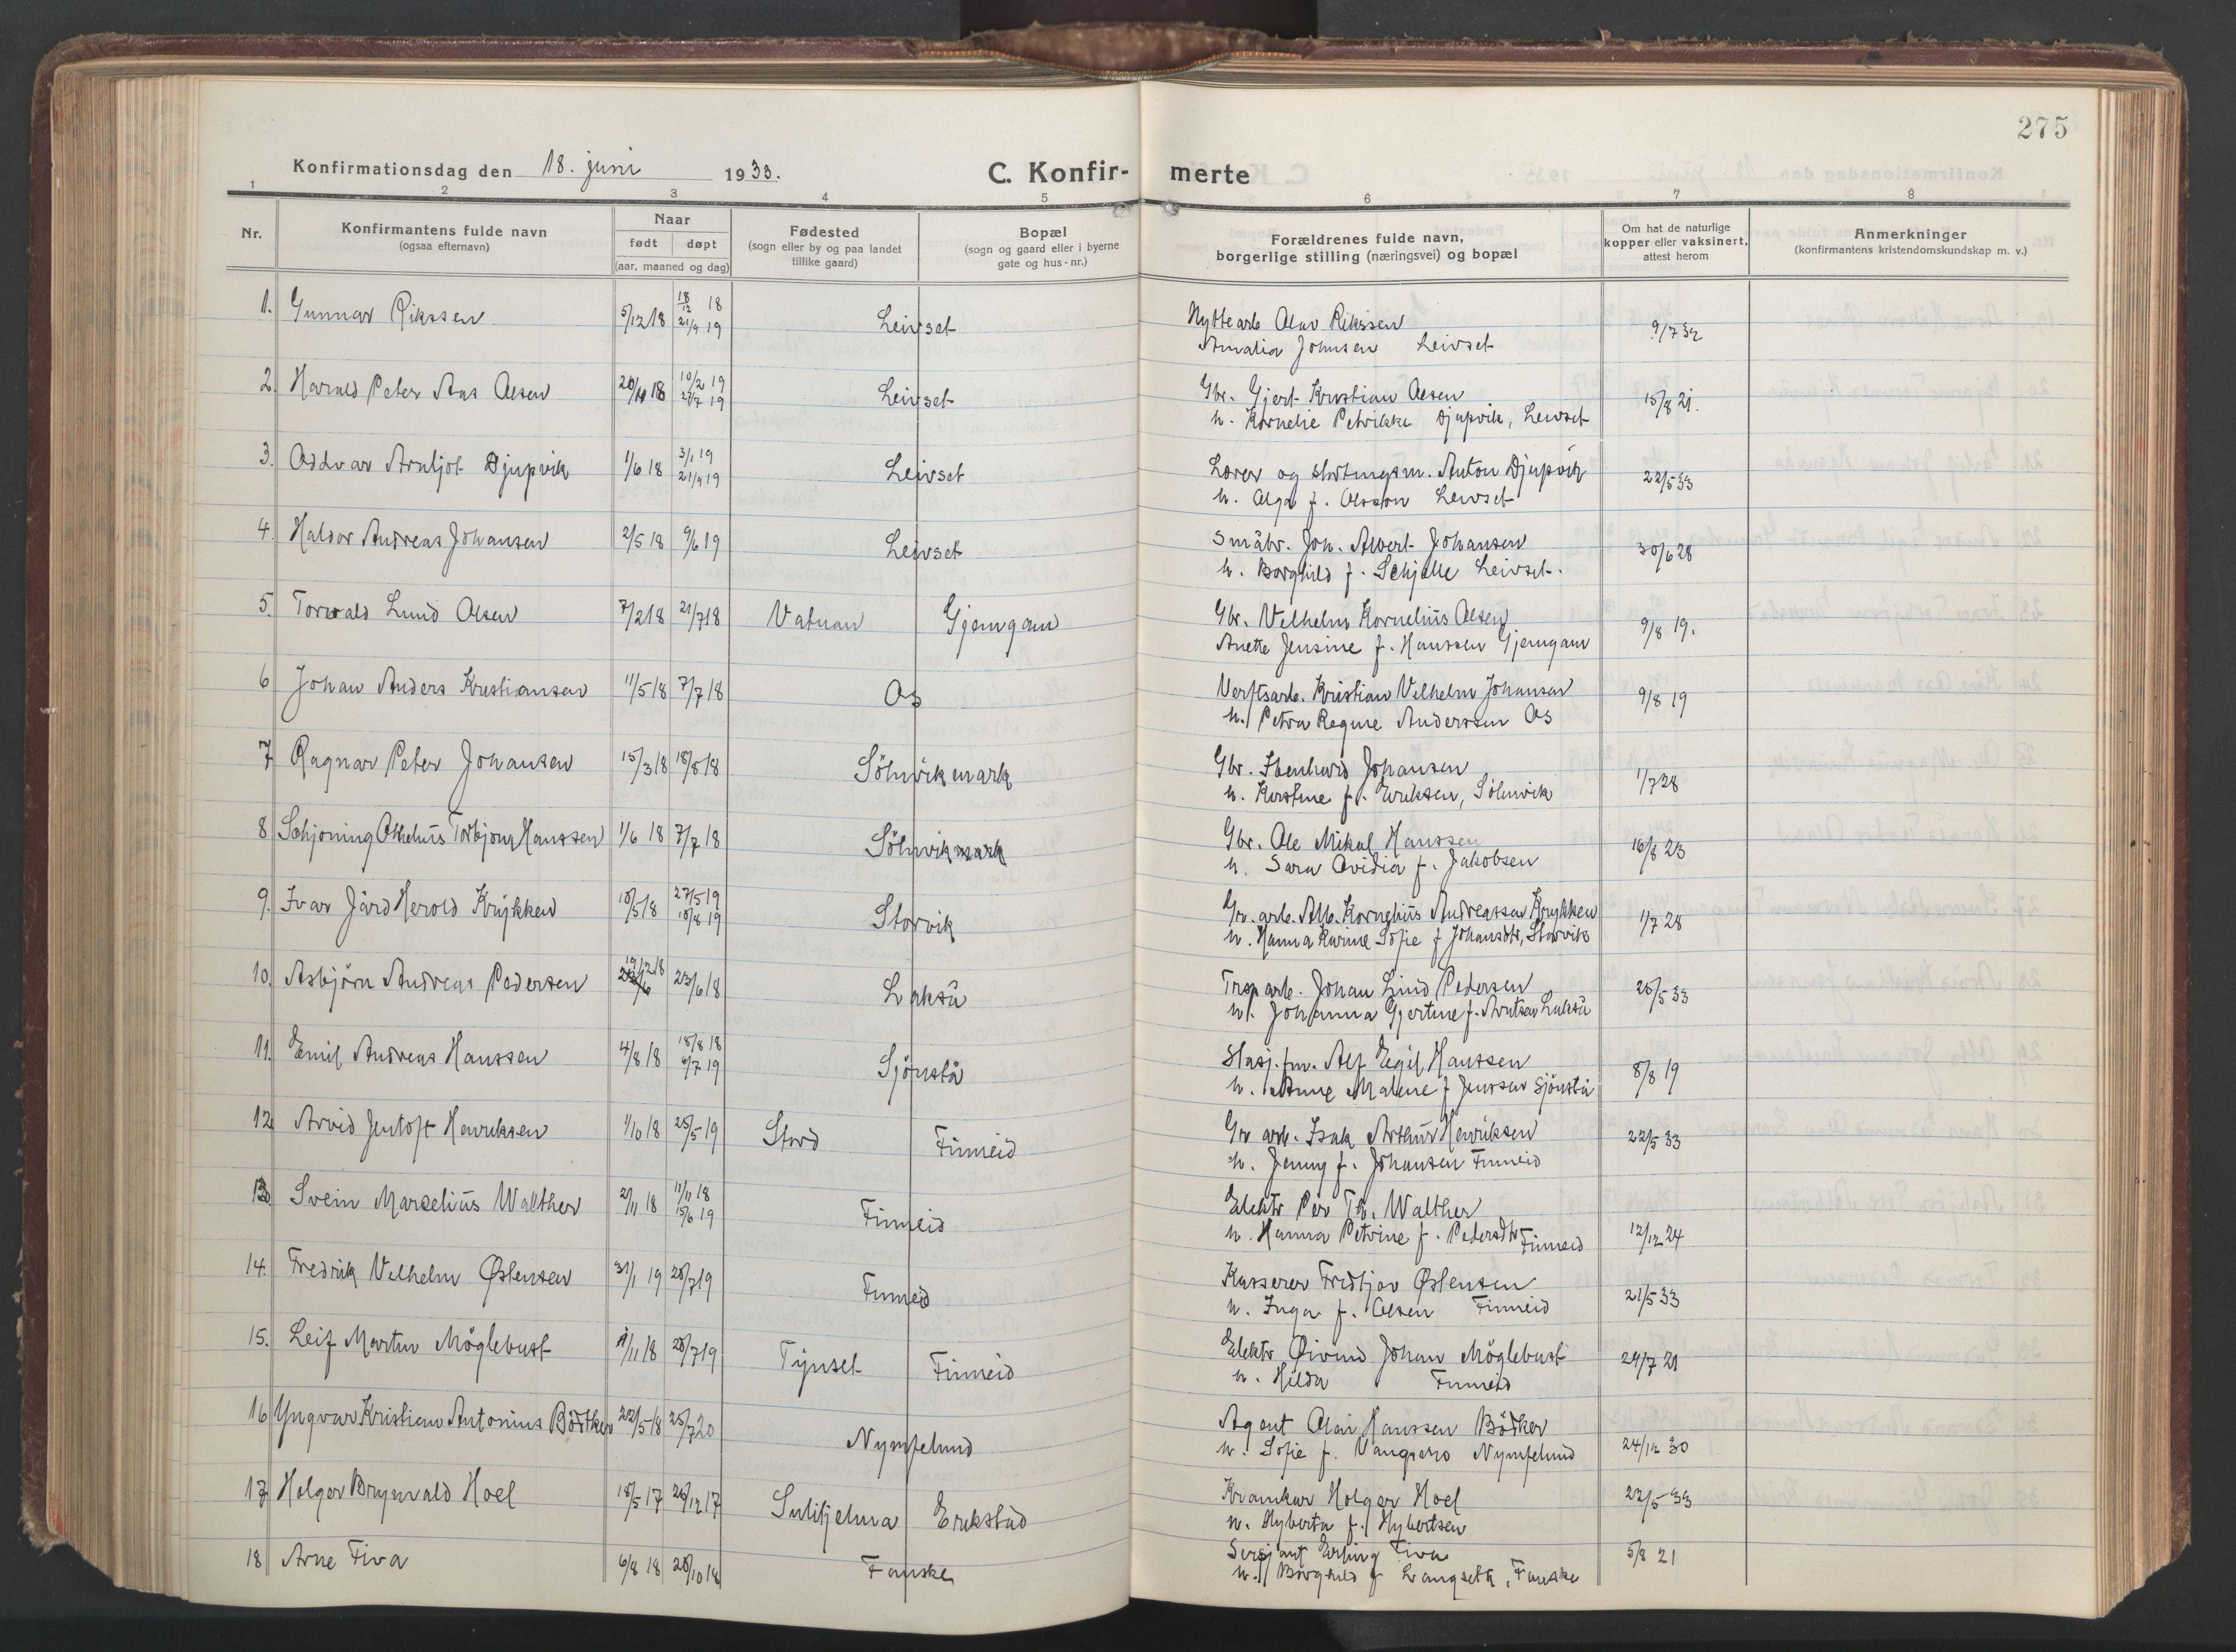 275
Konfirmationsdag den 18. juni 1933.
C. Konfir- merte
1 2 3 4 5 6 7 8
Nr.
Konfirmantens fulde navn
(ogsaa efternavn)
Naar
født døpt
(aar, maaned og dag)
Fødested
(sogn eller by og paa landet
tillike gaard)
Bopæl
(sogn og gaard eller i byerne
gate og hus-nr.)
Forældrenes fulde navn,
borgerlige stilling (næringsvei) og bopæl
Om hat de naturlige
kopper eller vaksinert,
attest herom
Anmerkninger
(konfirmantens kristendomskundskap m. v.)
1. Gunnar Rikssen 5/12 18 18/12 18 21/9 19 Leivset Hyttearb Olav Rikssen 9/7 32
Amalia Johnsen Leivset
2. Harald Peter Aas Olsen 20/11 18 10/2 19 27/7 19 Leivset Gbr. Gjert Kristian Olsen 15/8 21.
h. Kornelie Petrikke Djupvik, Leivset
3. Oddvar Arnljot Djupvik 1/6 18 3/1 19 21/9 19 Leivset Lærer og stortingsm. Anton Djupvik 22/5 33
h. Olga f. Olsson Leivset
4. Haldor Andreas Johansen 2/5 18 9/6 19 Leivset Småbr. Joh. Albert Johansen 30/6 28
h. Borghild f. Schjelle Leivset.
5. Torvald Lund Olsen 7/2 18 21/7 18 Vatnan Gjemgam Gbr. Vilhelm Kornelius Olsen 9/8 19.
Anette Jensine f. Hanssen Gjemgam
6 Johan Anders Kristiansen 11/5 18 7/7 18 Os Verftsarb. Kristian Vilhelm Johansen 9/8 19
h. Petra Regine Anderssen Os
7 Ragnar Peter Johansen 15/3 18 18/8 18 Sölnvikmark Gbr. Ibenhard Johansen 1/7 28
h. Kirstine f. Eriksen, Sölnvik
8 Schjoning Othelius Torbjorn Hanssen 1/6 18 7/7 18 Sölnvikmark Gbr. Ole Mikal Hanssen 16/8 23
h. Sara Ovidia f. Jakobsen
9. Ivar Jård Herold Krykken 10/5 18 27/5 19 10/8 19 Storvik Gr. arb. Alb. Kornelius Andreassen Krykken 1/7 28
h. Hanna Karine Sofie f Johansdtr, Storvik
10. Asbjörn Andreas Pedersen 19/2 18 23/6 18 Lakså Trsp arb. Johan Lind Pedersen 26/5 33
h. Johanna Gjertine f. Arntsen Lakså
11. Emil Andreas Hanssen 4/8 18 18/8 18 6/7 19 Sjönstå Stasj. fm. Alf Egil Hanssen 8/8 19
h. Anne Malene f Jenssen Sjönstå
12 Arvid Jentoft Henriksen 1/10 18 25/5 19 Stord Finneid Gr arb. Isak Arthur Henriksen 22/5 33
h. Jenny f. Johansen Finneid
13. Svein Marselius Walther 2/11 18 11/11 18 15/6 19 Finneid Elektr Per Th. Walther 12/12 24
h. Hanna Petrine f. Pedersdtr Finneid
14. Fredrik Vilhelm Østensen 31/1 19 20/7 19 Finneid Kasserer Fridtjov Østensen 21/5 33
h. Inga f. Olsen Finneid
15. Leif Martin Möglebust 11/11 18 20/7 19 Tynset Finneid Elektr Øivind Johan Möglebust 24/7 21
h. Hilda Finneid
16 Yngvar Kristian Antonius Bödtker 22/5 18 25/7 20 Nymfelund Agent Olai Hanssen Bödker 24/12 30
h. Sofie f. Vangsero Nymfelund
17 Holger Brynvald Hoel 18/5 17 26/12 17 Sulitjelma Erikstad Kramkar Holger Hoel 22/5 33
h. Hyberta f. Hybertsen
18 Arne Fiva 6/8 18 20/10 18 Fauske Sersjant Erling Fiva 5/8 21
h. Borghild f Langseth, Fauske